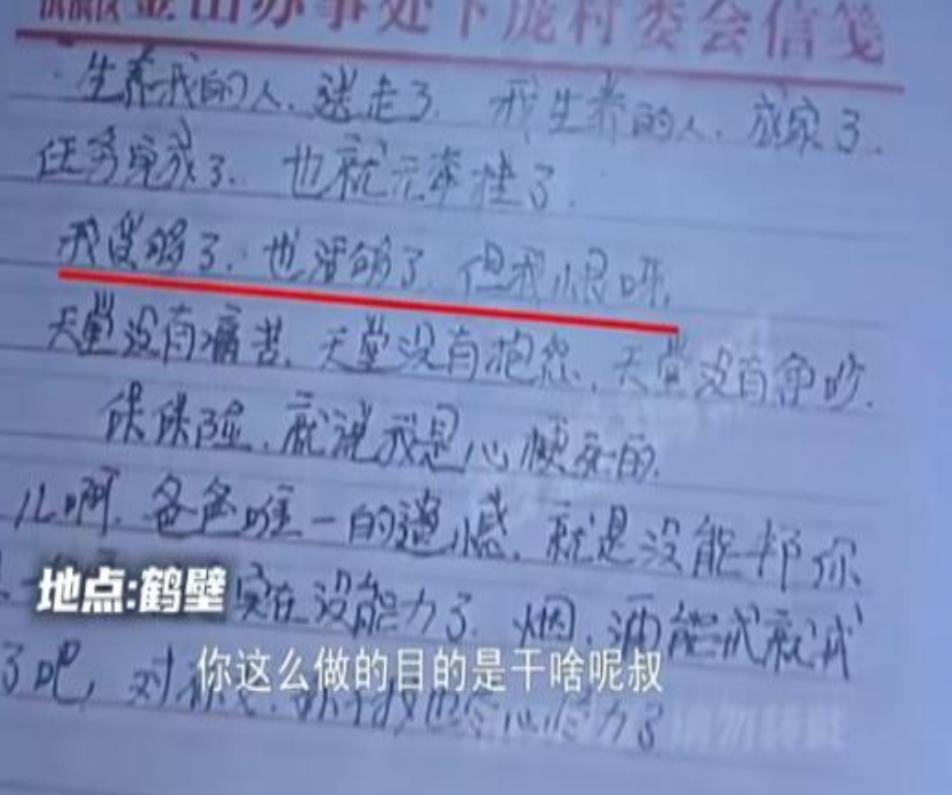 金山办事处下庞村委会信笺
生养我的人，送走了，我生养的人，成家了，
任务完成了，也就无牵挂了．
我受够了，也活够了，但我恨呀，
天堂没有痛苦，天堂没有抱怨，天堂没有争吵．
保保险，就说我是心梗死的，
儿啊，爸爸唯一的遗憾，就是没能帮你
地点:鹤壁
实在没能力了，烟、酒能戒就戒
了吧，对
你这么做的目的是干啥呢叔
我也尽心尽力了
请勿转载